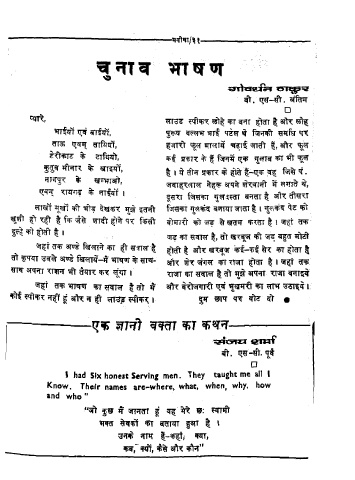 मनीषा/३१
चुनाव भाषण
गोवर्धन ठाकुर
बी. एस-सी. अंतिम
प्यारे,
भाईयों एवं बाईयों,
ताऊ एवम् ताथियों,
टेरीकाट के टाथियों,
कुतुब मीनार के खाडयों,
नागपुर के खम्भाओं,
एवम् रायगढ़ के नाईयों।
लाखों मूर्खों की भीड़ देखकर मुझे इतनी
खुशी हो रही है कि जैसे शादी होने पर किसी
दुल्हे को होती है।
जहां तक अण्डे खिलाने का ही सवाल है
तो कृपया उबले अण्डे खिलायें-मैं भाषण के साथ-
साथ अपना राशन भी तैयार कर लूंगा।
जहां तक भाषण का सवाल है तो मैं
कोई स्पीकर नहीं हूं और न ही लाउड स्पीकर।
लाउड स्पीकर लोहे का बना होता है और लौह
पुरुष वल्लभ भाई पटेल थे जिनकी समाधि पर
हजारों फूल मालायें चढ़ाई जाती हैं, और फूल
कई प्रकार के हैं जिनमें एक गुलाब का भी फूल
है। ये तीन प्रकार के होते हैं-एक वह जिसे पं.
जवाहरलाल नेहरू अपने शेरवानी में लगाते थे,
दूसरा जिसका गुलदस्ता बनता है और तीसरा
जिसका गुलकंद बनाया जाता है। गुलकंद पेट की
बीमारी को जड़ से खतम करता है। जहां तक
जड़ का सवाल है, तो खरबूज की जड़ बहुत मोटी
होती है और खरबूज कई-कई सेर का होता है
और शेर जंगल का राजा होता है। जहां तक
राजा का सवाल है तो मुझे अपना राजा बनाइये
और बेरोजगारी एवं भुखमरी का लाभ उठाइये।
दुम छाप पर वोट दो
एक ज्ञानी वक्ता का कथन
संजय शर्मा
बी. एस-सी. पूर्व
I had Six honest Serving men. They taught me all I
Know. Their names are-where, what, when, why, how
and who"
"जो कुछ मैं जानता हूं यह मेरे छः स्वामी
भक्त सेवकों का बताया हुआ है।
उनके नाम हैं-कहाँ, क्या,
कब, क्यों, कैसे और कौन"